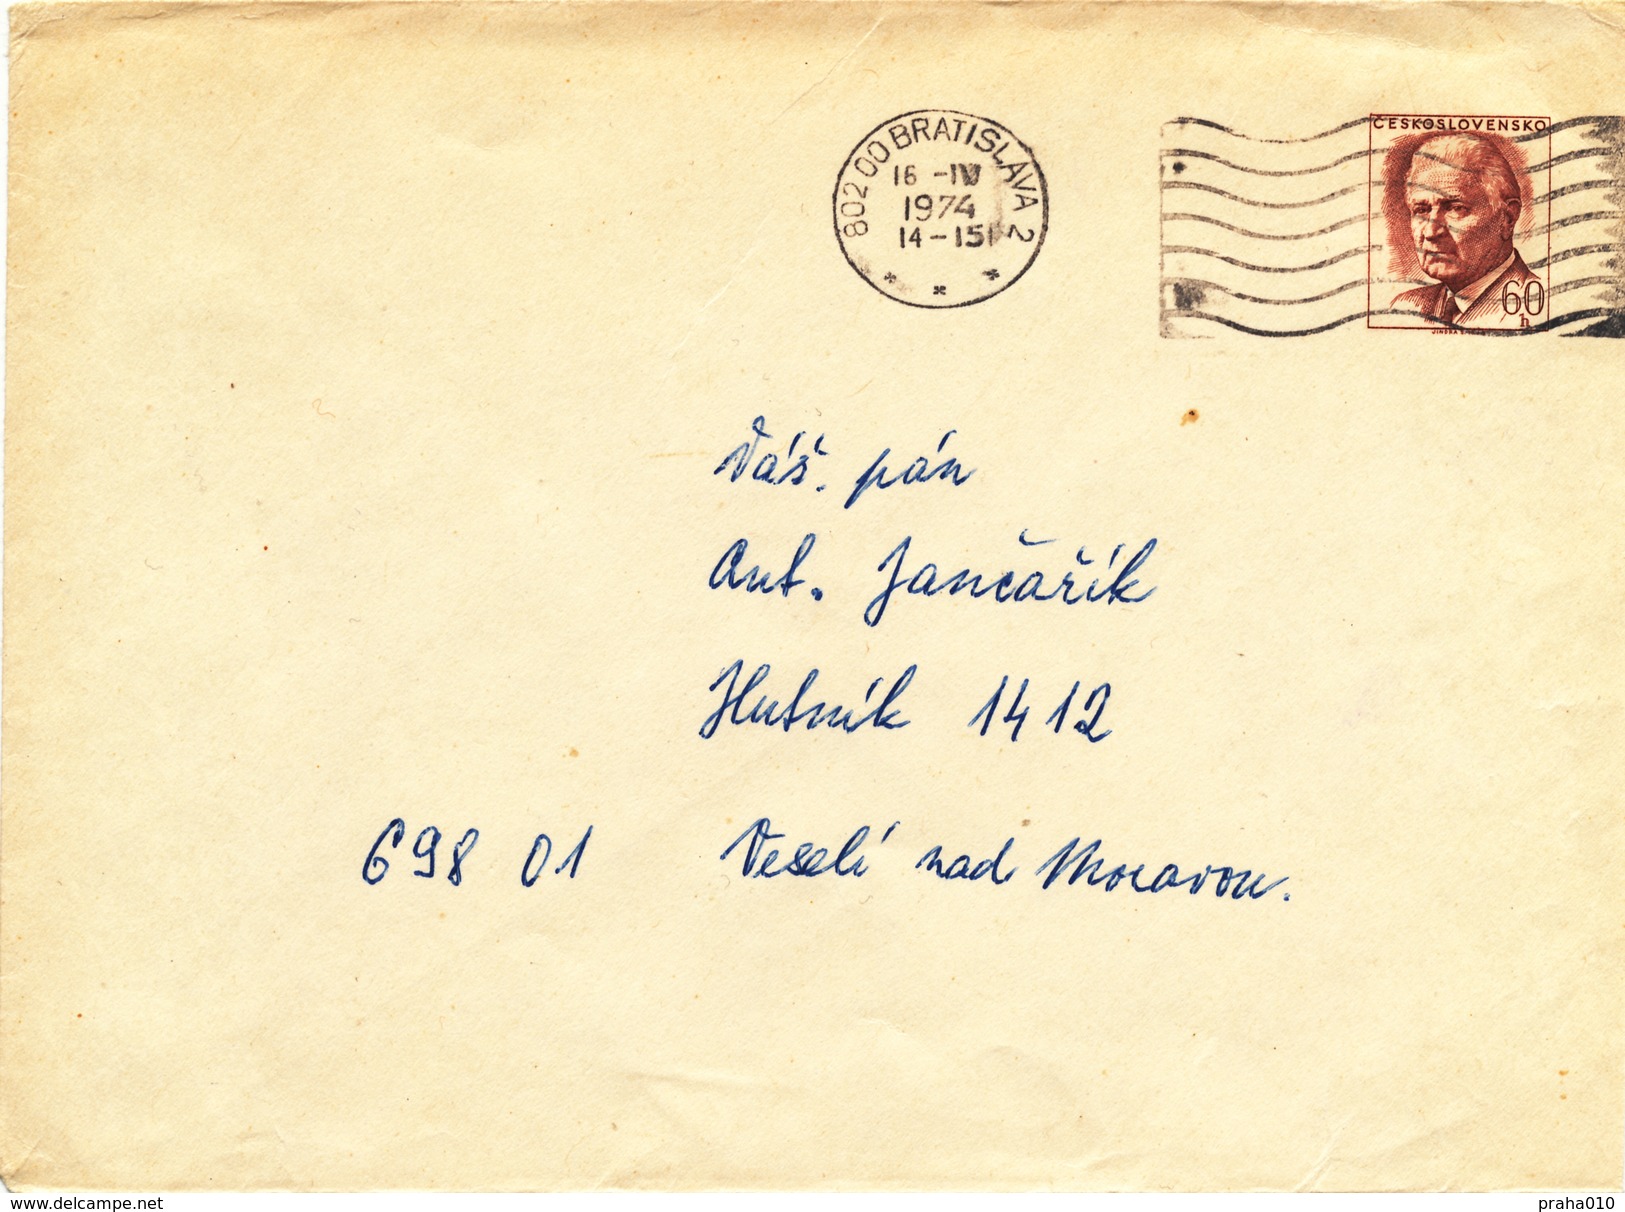 802 00 BRATISLAVA 2
16 -IV
1974
14-15
ČESKOSLOVENSKO
60
h
Váš. pán
Ant. Jančařík
Hutník 1412
698 01 Veselí nad Moravou.
www.delcampe.net
praha010